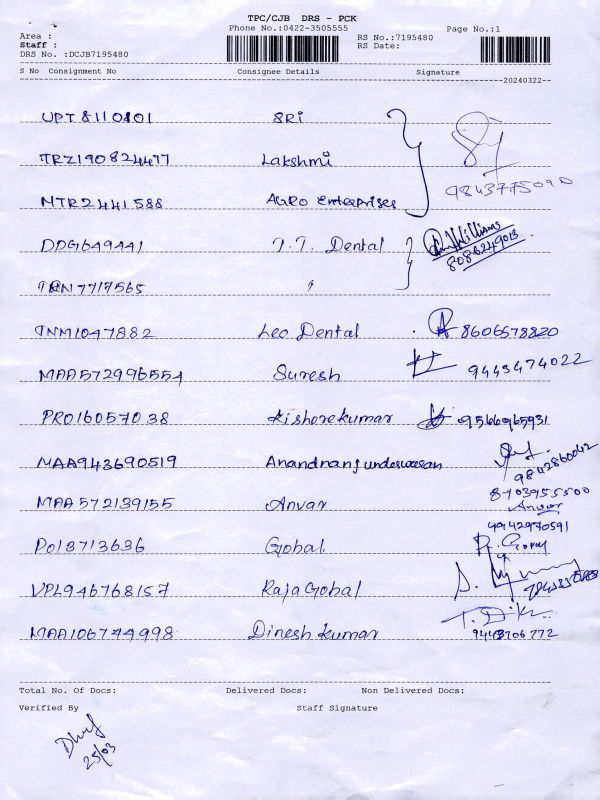 TPC/CJB DRS - PCK
Phone No.:0422-3505555 Page No.:1
Area : RS No.:7195480
Staff : RS Date:
DRS No. :DCJB7195480
S No Consignment No Consignee Details Signature
20240322
UPT8110101 SRi
TRZ190824477 Lakshmi
9843775090
MTR2441588 AGRO Enterprises
DDG649441 T.T. Dental Williams
8086249013
TRN7717565 "
TNM1047882 Leo Dental 8606578820
MAA572996554 Suresh 9443474022
PRO16057038 Kishorekumar 9566965931
MAA943690519 Anandnanjundeswaran 9842860042
8703955500
MAA572139155 Anvar Anvar
9942970591
PO13713636 Gobal R. Gopal
VPL946768157 RajaGobal
MAA106744998 Dinesh kumar T. Dik
9443706772
Total No. Of Docs: Delivered Docs: Non Delivered Docs:
Verified By Staff Signature
25/03